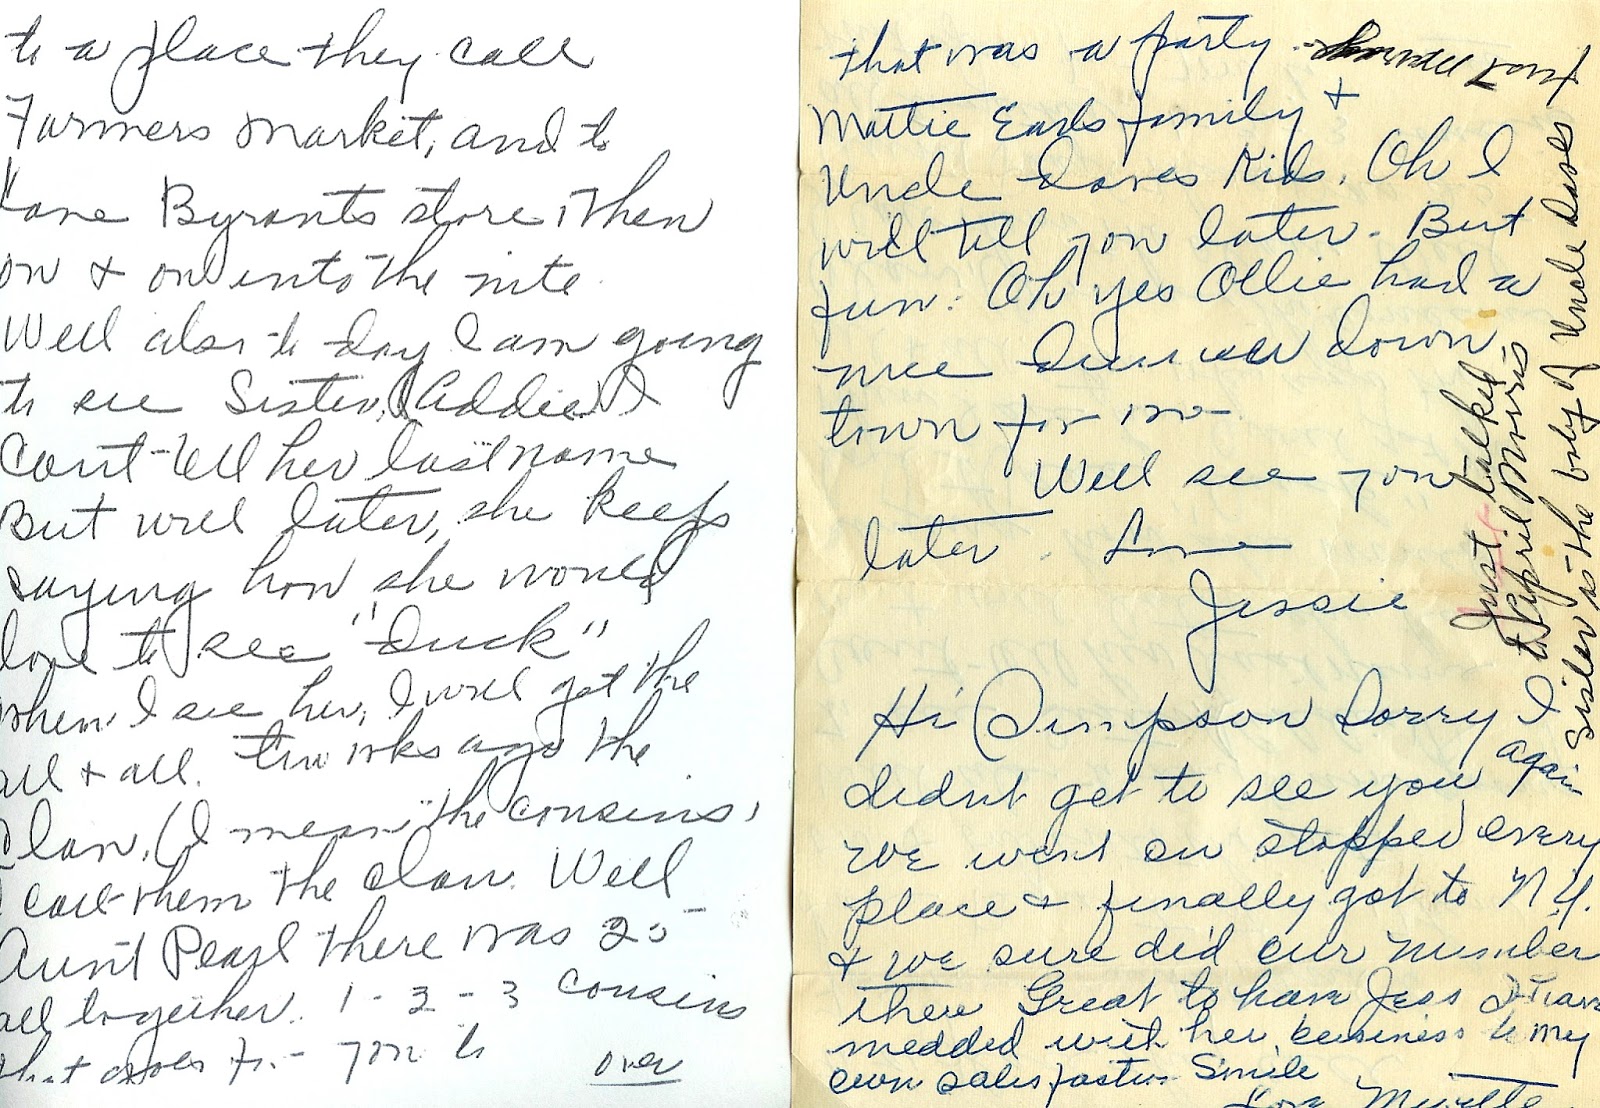 to a place they call
Farmers Market, and to
Lane Byrants store, then
on & on into the nite
Well also to day I am going
to see Sister (Addie) I
Cant tell her last name
But will later, she keeps
saying how she would
love to see "Duck"
when I see her, I will get the
all & all. two wks ago the
Clan, (I mean "the cousins,
I call them the clan. Well
Aunt Pearl there was 25
all together. 1 - 2 - 3 cousins
that goes for you to
over
that was a party
Aunt
Mattie Earls family &
Uncle Daves Kids. Oh I
will tell you later. But
fun. Oh yes Ollie had a
nice down
town for us
Well see you
later. Love
Jessie
Just talked
to April Morris
Sister is the only of Uncle Daves
Hi Simpson Sorry I
didnt get to see you again
we went on stopped every
place & finally got to N.Y.
& we sure did our number
there Great to have Jess I have
medded with her business to my
own satisfaction Smile
Love